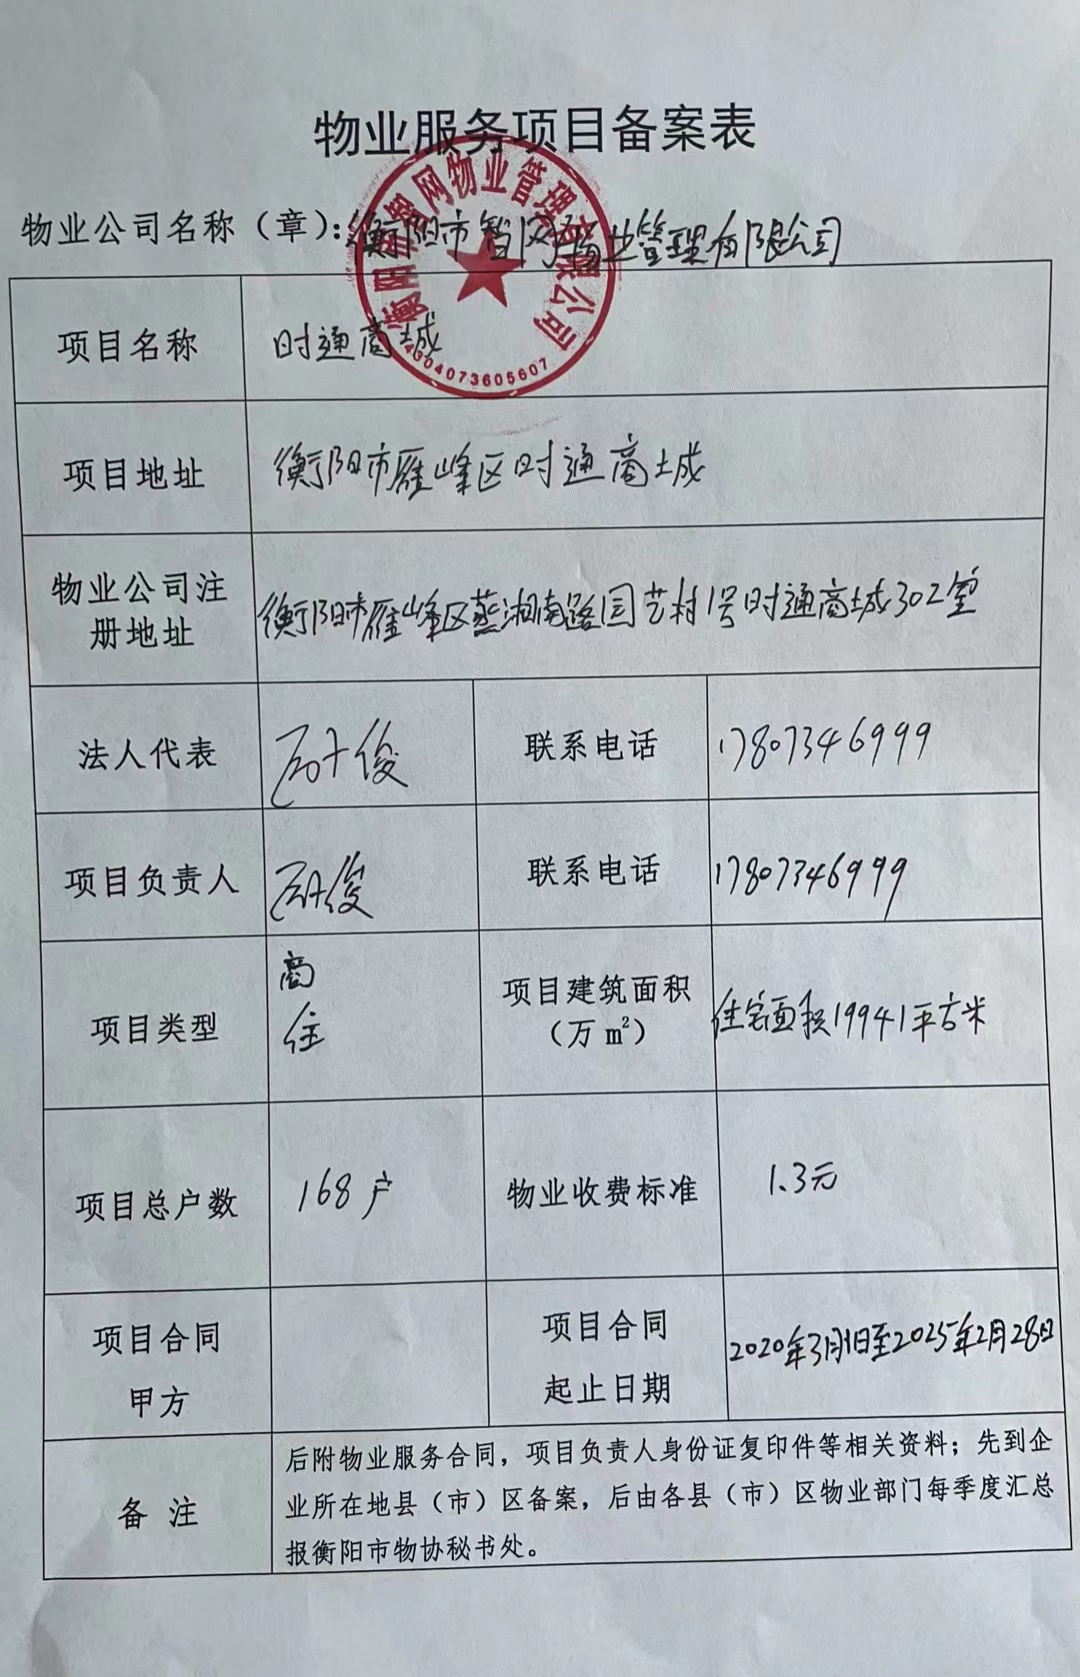 物业服务项目备案表
物业公司名称（章）：衡阳市智网物业管理有限公司
衡阳市智网物业管理有限公司
4304073605607
项目名称 时通商城
项目地址 衡阳市雁峰区时通商城
物业公司注
册地址
衡阳市雁峰区蒸湘南路园艺村1号时通商城302室
法人代表 俊 联系电话 17807346999
项目负责人 俊 联系电话 17807346999
项目类型
商
住
项目建筑面积
（万m²）
住宅面积19941平方米
项目总户数 168户 物业收费标准 1.3元
项目合同
甲方
项目合同
起止日期
2020年3月1日至2025年2月28日
备 注
后附物业服务合同，项目负责人身份证复印件等相关资料；先到企
业所在地县（市）区备案，后由各县（市）区物业部门每季度汇总
报衡阳市物协秘书处。